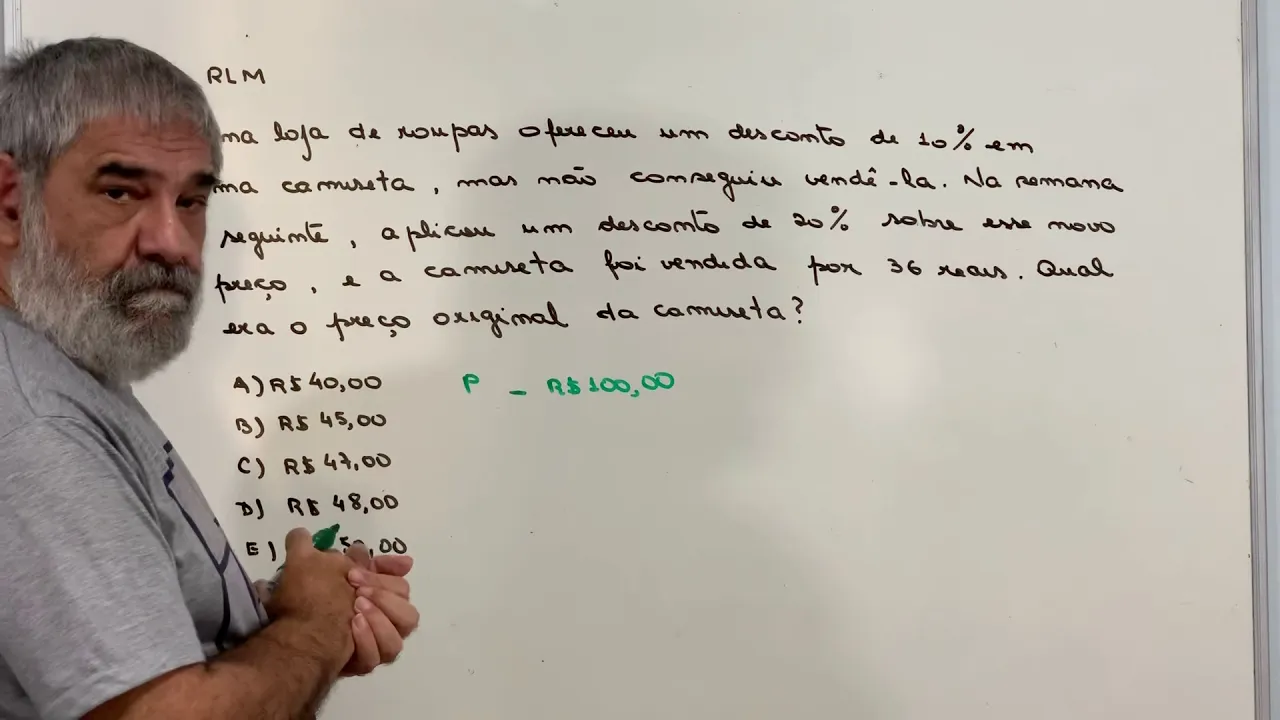 RLM
ma loja de roupas ofereceu um desconto de 10% em
ma camiseta, mas não conseguiu vendê-la. Na semana
seguinte, aplicou um desconto de 20% sobre esse novo
preço, e a camiseta foi vendida por 36 reais. Qual
era o preço original da camiseta?
A) R$ 40,00 P - R$ 100,00
B) R$ 45,00
C) R$ 47,00
D) R$ 48,00
E) ,00